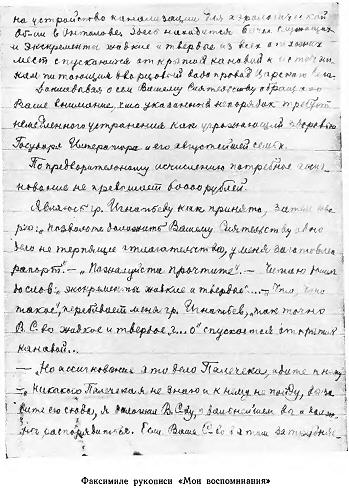 на устройство канализации для хирологической
Здесь находится
и экскременты жидкие и твердые из всех отхожих
мест спускаются открытой канавой к источни-
кам питающим дворцовый водопровод Царского Села
Докладывая о сем Вашему Сиятельству обращаю
Ваше внимание, что указанный непорядок требует
немедленного устранения как угрожающий здоровью
Государя Императора и его августейшей семьи.
По предварительному исчислению потребное ассиг-
нование не превышает 60000 рублей.
Являюсь гр. Игнатьеву как принято, затем гово-
рю: „позвольте доложить Вашему Сиятельству
дело не терпящее отлагательства, у меня заготовлен
рапорт". — „Пожалуйста прочтите". — Читаю
дословно: „экскременты жидкие и твердые"... — „Что, что
такое", перебивает меня гр. Игнатьев, „так точно
В. С-во жидкое и твердое г...о" спускается открытой
канавой...
— Но ассигнование это дело Палечека, идите к нему
— „Никакого Палечека я не знаю и к нему не пойду,
я доложил В. С-ву, о дальнейшем
распорядиться. Если Ваше С-во в этом
Факсимиле рукописи «Мои воспоминания»